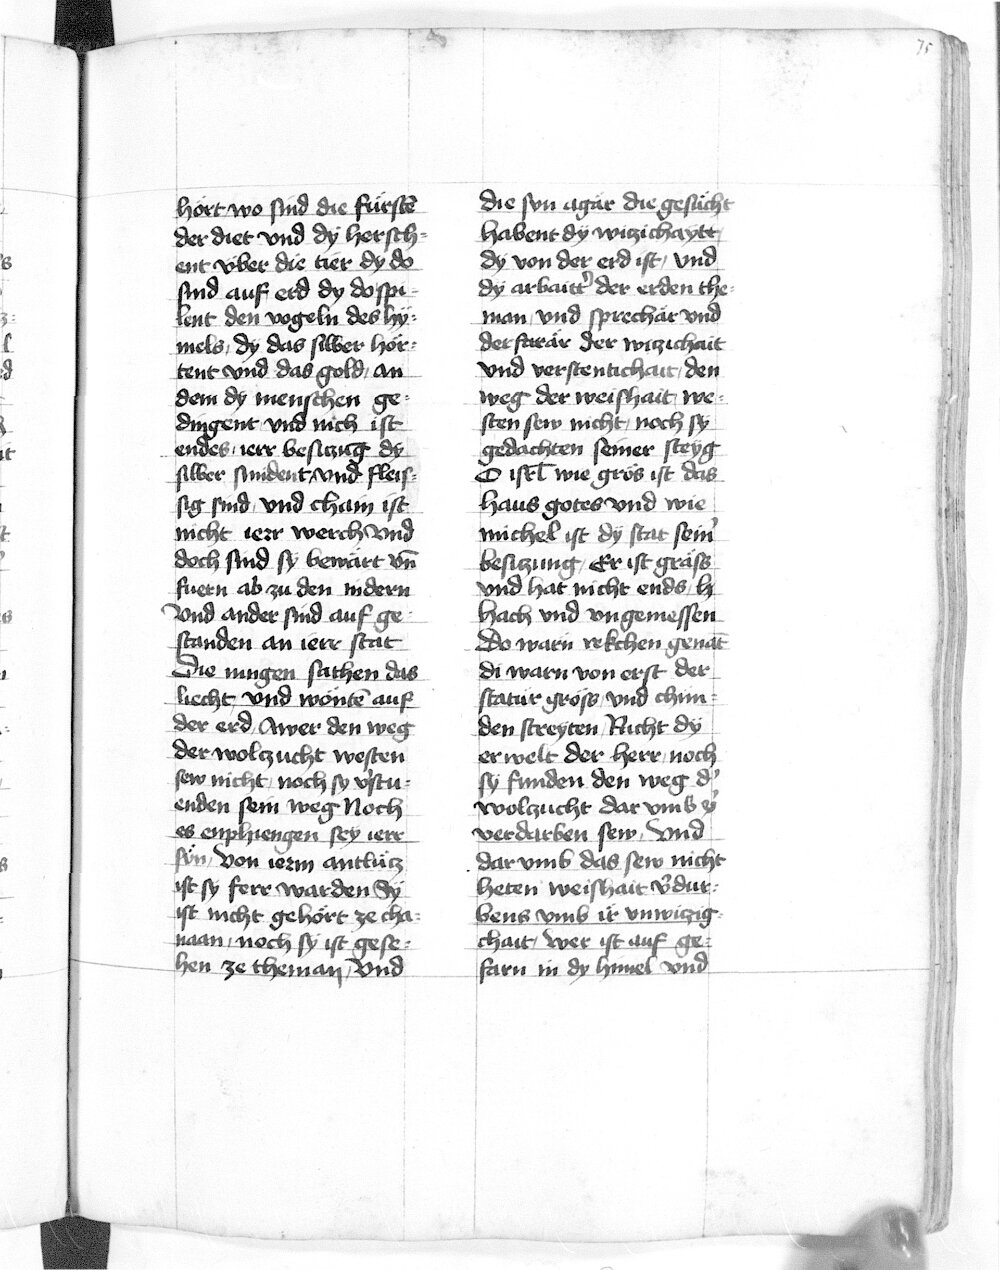 75
hört wo sind die fürstē
der diet vnd dÿ hersch=
ent vber die tier dy do
sind auf erd dy do spi=
lent den vogeln des hÿ=
mels, dy das silber hör=
tent vnd das gold, an
dem dy menschen ge=
dingent vnd nich ist
endes, ierr besiczūg dy
silber smident, vnd fleis=
sig sind, vnd chain ist
nicht ierr werch vnd
doch sind sy bewärt vn̄
fuern ab zu den nidern
vnd ander sind auf ge=
standen an ierr stat
Die iungen sachen das
liecht, vnd wontē auf
der erd, Awer den weg
der wolczucht westen
sew nicht, noch sy v̓stu=
enden sein weg Noch
es enphiengen sey ierr
sün, von ierm antlücz
ist sy ferr warden Sy
ist nicht gehört ze cha=
naan, noch sy ist gese=
hen ze theman, Vnd
die svn agar die gesücht
habent dy wiczichaytt
dy von der erd ist, vnd
dy arbaitt̓ der erden the=
man, vnd sprechär vnd
derfarär der wiczichait
vnd verstentichait, den
weg der weishait, we=
sten sew nicht, noch sy
gedachten seiner steyg
O isrl̄ wie gros ist das
haus gotes vnd wie
michel ist dy stat sein̓
besiczung, Er ist gräss
vnd hat nicht ends, h
hach vnd vngemessen
Do warn rekchen genāt
di warn von erst der
statur gröss, vnd chun=
den streyten Nicht dy
erwelt der herr, noch
sy funden den weg d̓
wolczucht dar vmb
verdarben sew, Vnd
dar vmb das sew nicht
heten weishait v̓dur=
bens vmb ir vnwiczig=
chait, Wer ist auf ge=
farn in dy himel vnd